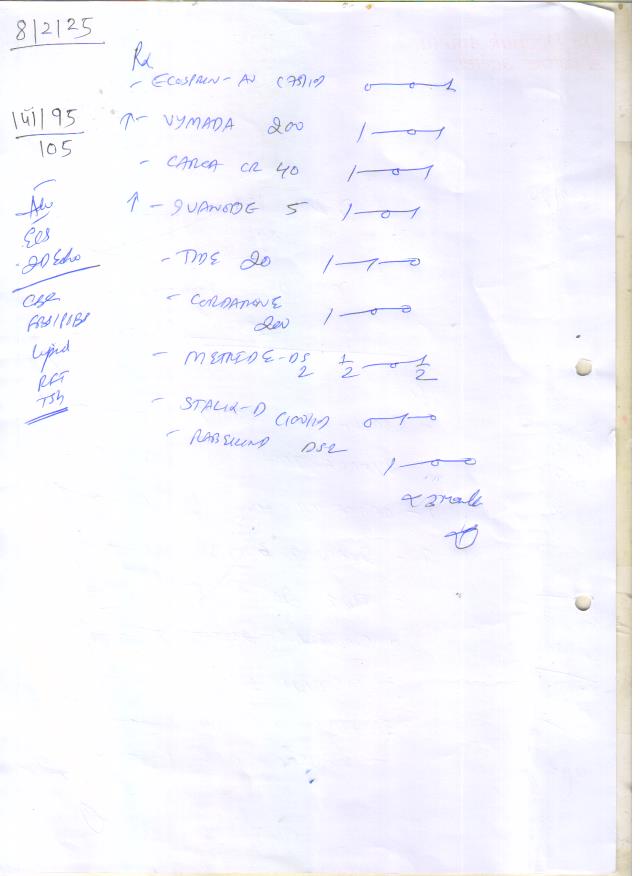 8/2/25
Rx
- ECOSPRIN-AV (75/10) 0—0—1
141/95
105
↑- VYMADA 200 1—0—1
- CARCA CR 40 1—0—1
Adv
ECG
2D Echo
CBC
FBS/PPBS
Lipid
RFT
TSH
↑ - IVANODE 5 1—0—1
- TIDE 20 1—1—0
- CORDARONE
200 1—0—0
- METREDE-DS
2 1/2—0—1/2
- STALIX-D (100/10) 0—1—0
- RABEKIND DSR
1—0—0